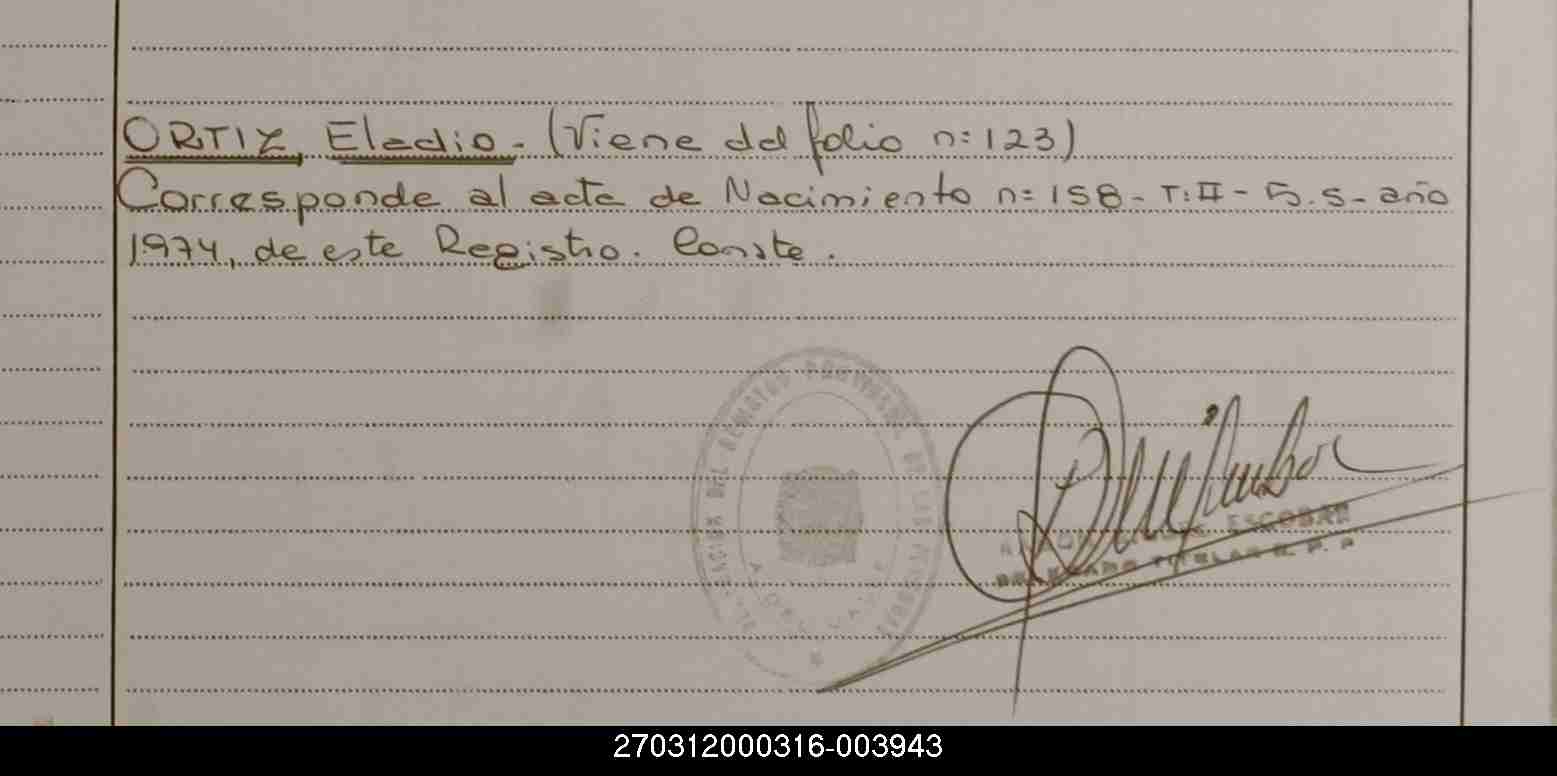 ORTIZ, Eladio. (Viene del folio n: 123)
Corresponde al acta de Nacimiento n: 158 - T: II - S. S - año
1974, de este Registro. Conste.
ESCOBAR
TITULAR R. P. P
270312000316-003943